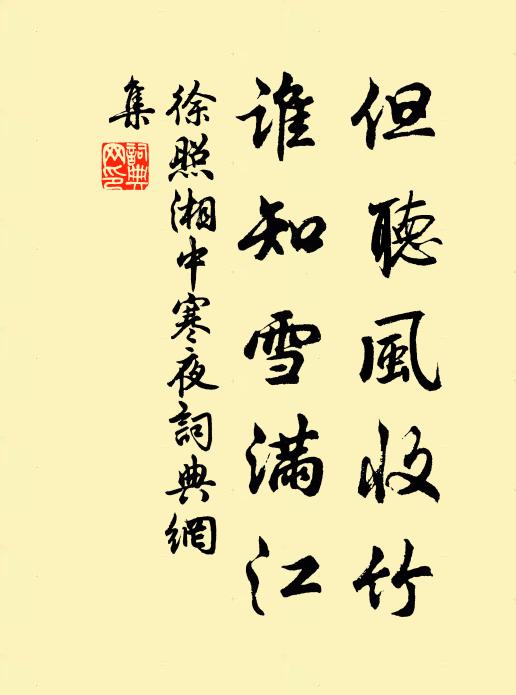 但聽風收竹
誰知雪滿江
徐照湘中寒夜詞典網
集
詞典網印